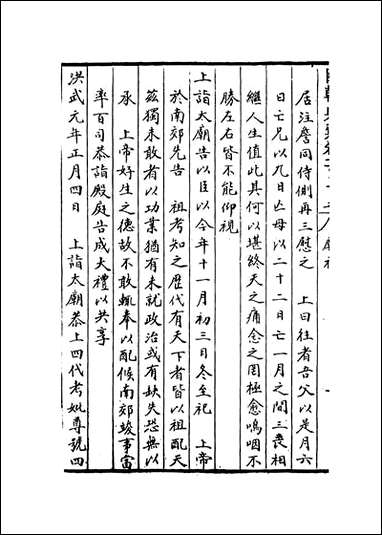 居注詹同侍側再三慰之　上曰往者吾父以是月六
日亡兄以九日亡母以二十二日亡一月之間三喪相
繼人生值此其何以堪終天之痛念之罔極愈嗚咽不
勝左右皆不能仰視
上詣太廟告以臣以今年十一月初三日冬至祀　上帝
於南郊先告　祖考知之歷代有天下者皆以祖配天
茲獨未敢者以功業猶有未就政治或有缺失恐無以
承　上帝好生之德故不敢輒奉以配候南郊竣事當
率百司恭詣殿庭告成大禮以共享
洪武元年正月四日　上詣太廟恭上四代考妣尊號四